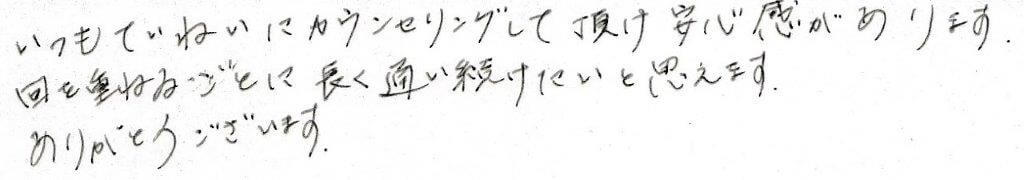 いつもていねいにカウンセリングして頂け安心感があります.
回を重ねるごとに長く通い続けたいと思えます.
ありがとうございます.